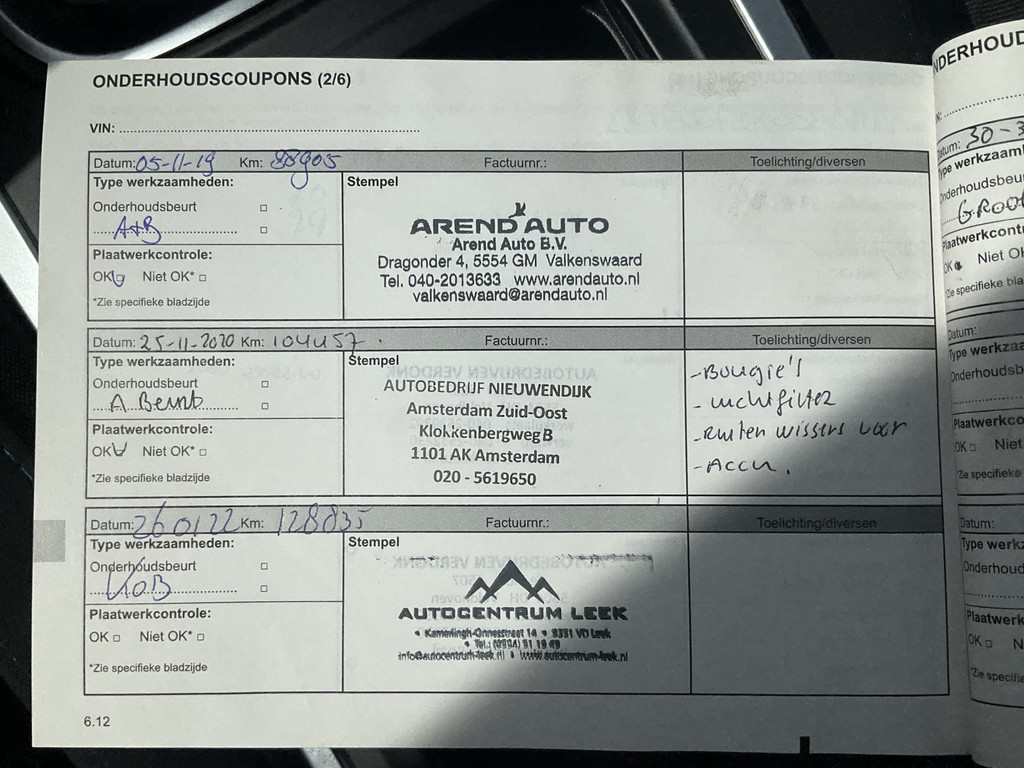 ONDERHOUDSCOUPONS (2/6)
VIN:
Datum: 05-11-19 Km: 88905 Factuurnr.: Toelichting/diversen
Type werkzaamheden: Stempel
Onderhoudsbeurt
A+B
Plaatwerkcontrole:
OK Niet OK*
*Zie specifieke bladzijde
AREND AUTO
Arend Auto B.V.
Dragonder 4, 5554 GM Valkenswaard
Tel. 040-2013633 www.arendauto.nl
valkenswaard@arendauto.nl
Datum: 25-11-2020 Km: 104457 Factuurnr.: Toelichting/diversen
Type werkzaamheden: Stempel
Onderhoudsbeurt
A Beurt
Plaatwerkcontrole:
OK Niet OK*
*Zie specifieke bladzijde
AUTOBEDRIJF NIEUWENDIJK
Amsterdam Zuid-Oost
Klokkenbergweg B
1101 AK Amsterdam
020 - 5619650
- Bougie's
- Luchtfilter
- Ruiten wissers voor
- Accu.
Datum: 260122 Km: 128835 Factuurnr.: Toelichting/diversen
Type werkzaamheden: Stempel
Onderhoudsbeurt
Plaatwerkcontrole:
OK Niet OK*
*Zie specifieke bladzijde
AUTOCENTRUM LEEK
• Kamerlingh-Onnesstraat 14 • 9351 VD Leek
• Tel.: (0594) 51 19 49
info@autocentrum-leek.nl • www.autocentrum-leek.nl
6.12
NDERHOUD
Datum: 30-3
Type werkzaam
Onderhoudsbeur
GROO
Plaatwerkcontr
OK Niet OK
*Zie specifieke bla
Datum:
Type werkza
Onderhoudsb
Plaatwerkco
OK Niet
*Zie specifie
Datum:
Type werk
Onderhoud
Plaatwerk
OK N
*Zie specifie